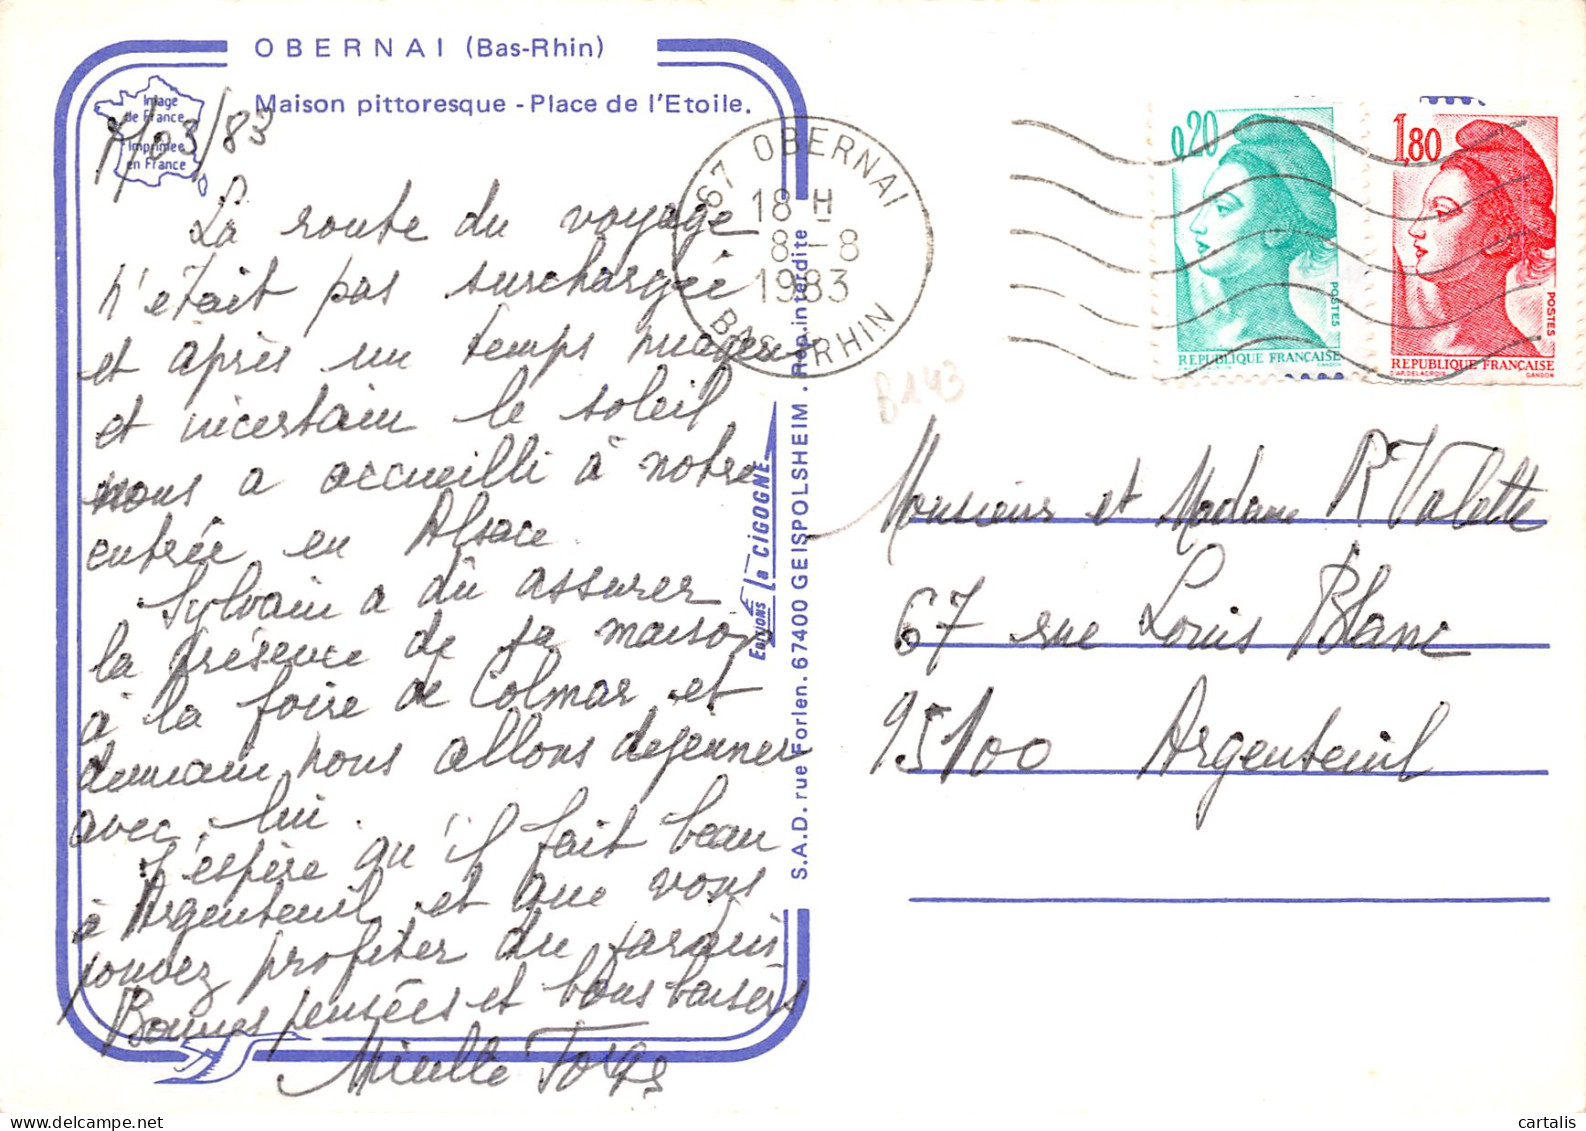 OBERNAI (Bas-Rhin)
Maison pittoresque - Place de l'Etoile.
Image
de France
Imprimée
en France
/03/83
La route du voyage
n'était pas surchargée
et après un temps nuageux
et incertain le soleil
nous a accueilli à notre
entrée en Alsace
Sylvain a dû assurer
la présence de sa maison
à la foire de Colmar et
demain nous allons dejeuner
avec lui.
J'espère qu'il fait beau
à Argenteuil et que vous
pouvez profiter du
Bonnes pensées et bons baisers
Mireille
67 OBERNAI
18 H
8-8
1983
BAS-RHIN
0,20
POSTES
REPUBLIQUE FRANÇAISE
D'AP. DELACROIX GANDON
1,80
POSTES
REPUBLIQUE FRANÇAISE
D'AP. DELACROIX GANDON
B143
Editions la CIGOGNE
S.A.D. rue Forlen. 67400 GEISPOLSHEIM . Rep. interdite
Monsieur et Madame R Valette
67 rue Louis Blanc
95100 Argenteuil
cartalis